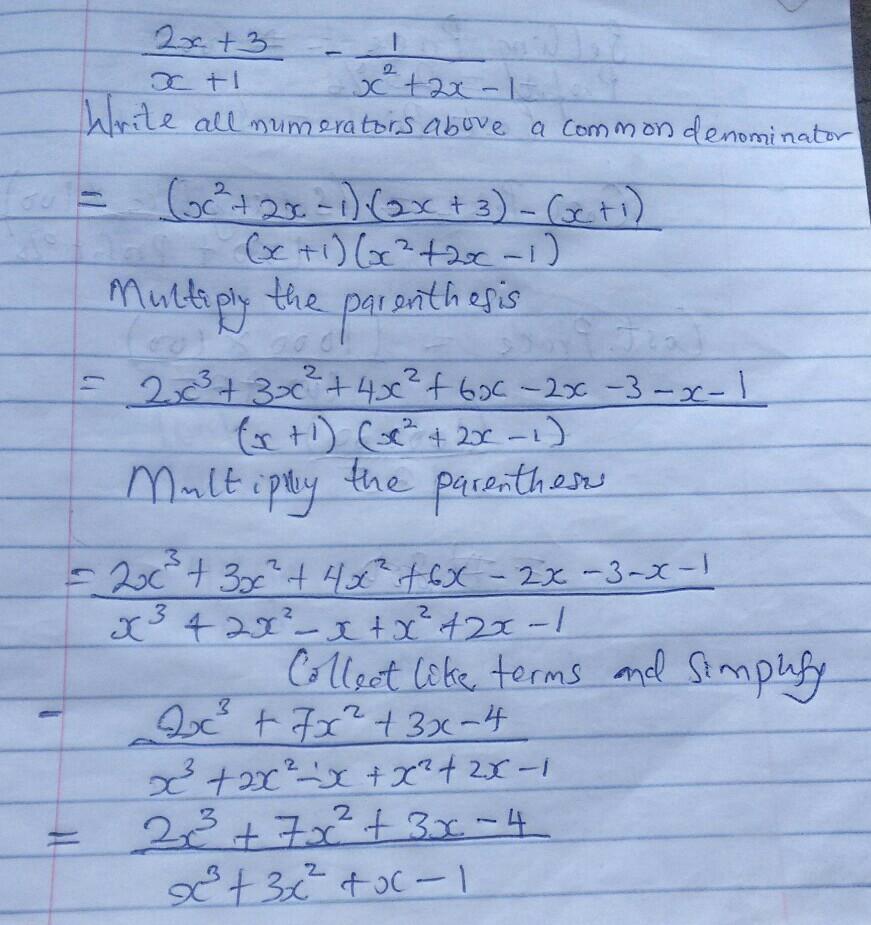 2x + 3 / x + 1 - 1 / x² + 2x - 1
Write all numerators above a common denominator
= (x² + 2x - 1)(2x + 3) - (x + 1) / (x + 1)(x² + 2x - 1)
Multiply the parenthesis
= 2x³ + 3x² + 4x² + 6x - 2x - 3 - x - 1 / (x + 1) (x² + 2x - 1)
Multiply the parenthesis
= 2x³ + 3x² + 4x² + 6x - 2x - 3 - x - 1 / x³ + 2x² - x + x² + 2x - 1
Collect like terms and simplify
- 2x³ + 7x² + 3x - 4 / x³ + 2x² - x + x² + 2x - 1
= 2x³ + 7x² + 3x - 4 / x³ + 3x² + x - 1